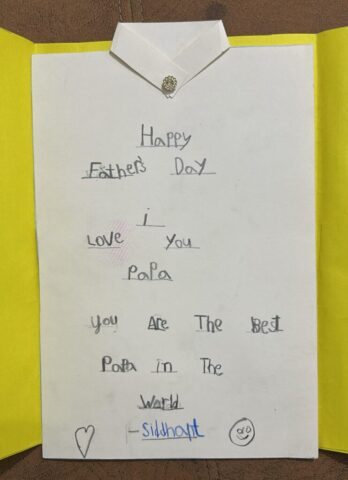 Happy
Father's Day
i
Love You
PaPa
You Are The Best
PaPa in The
World
- Siddhant